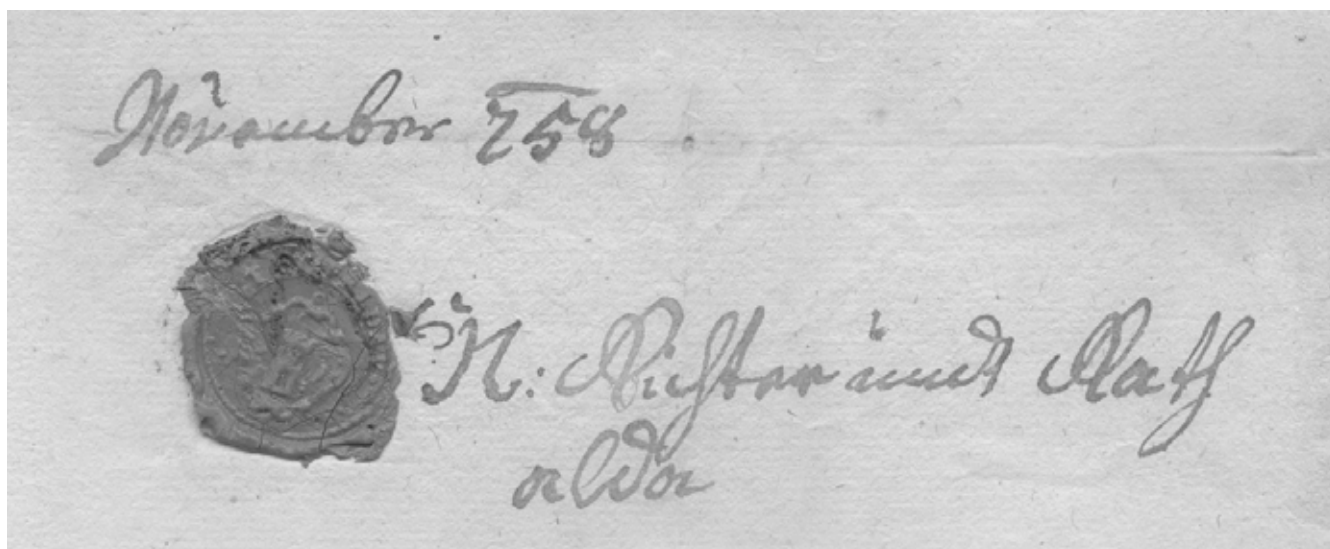 November 758.
N: Richter undt Rath
alda